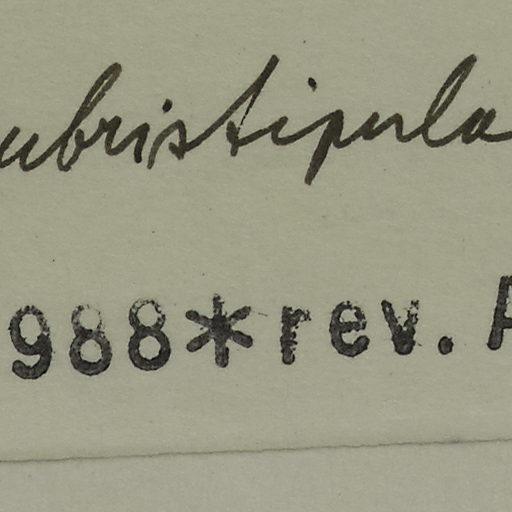 ubristipula
988*rev. A